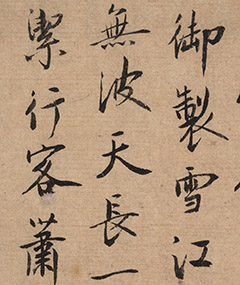 御製雪江
無波天長一
潔行客蕭